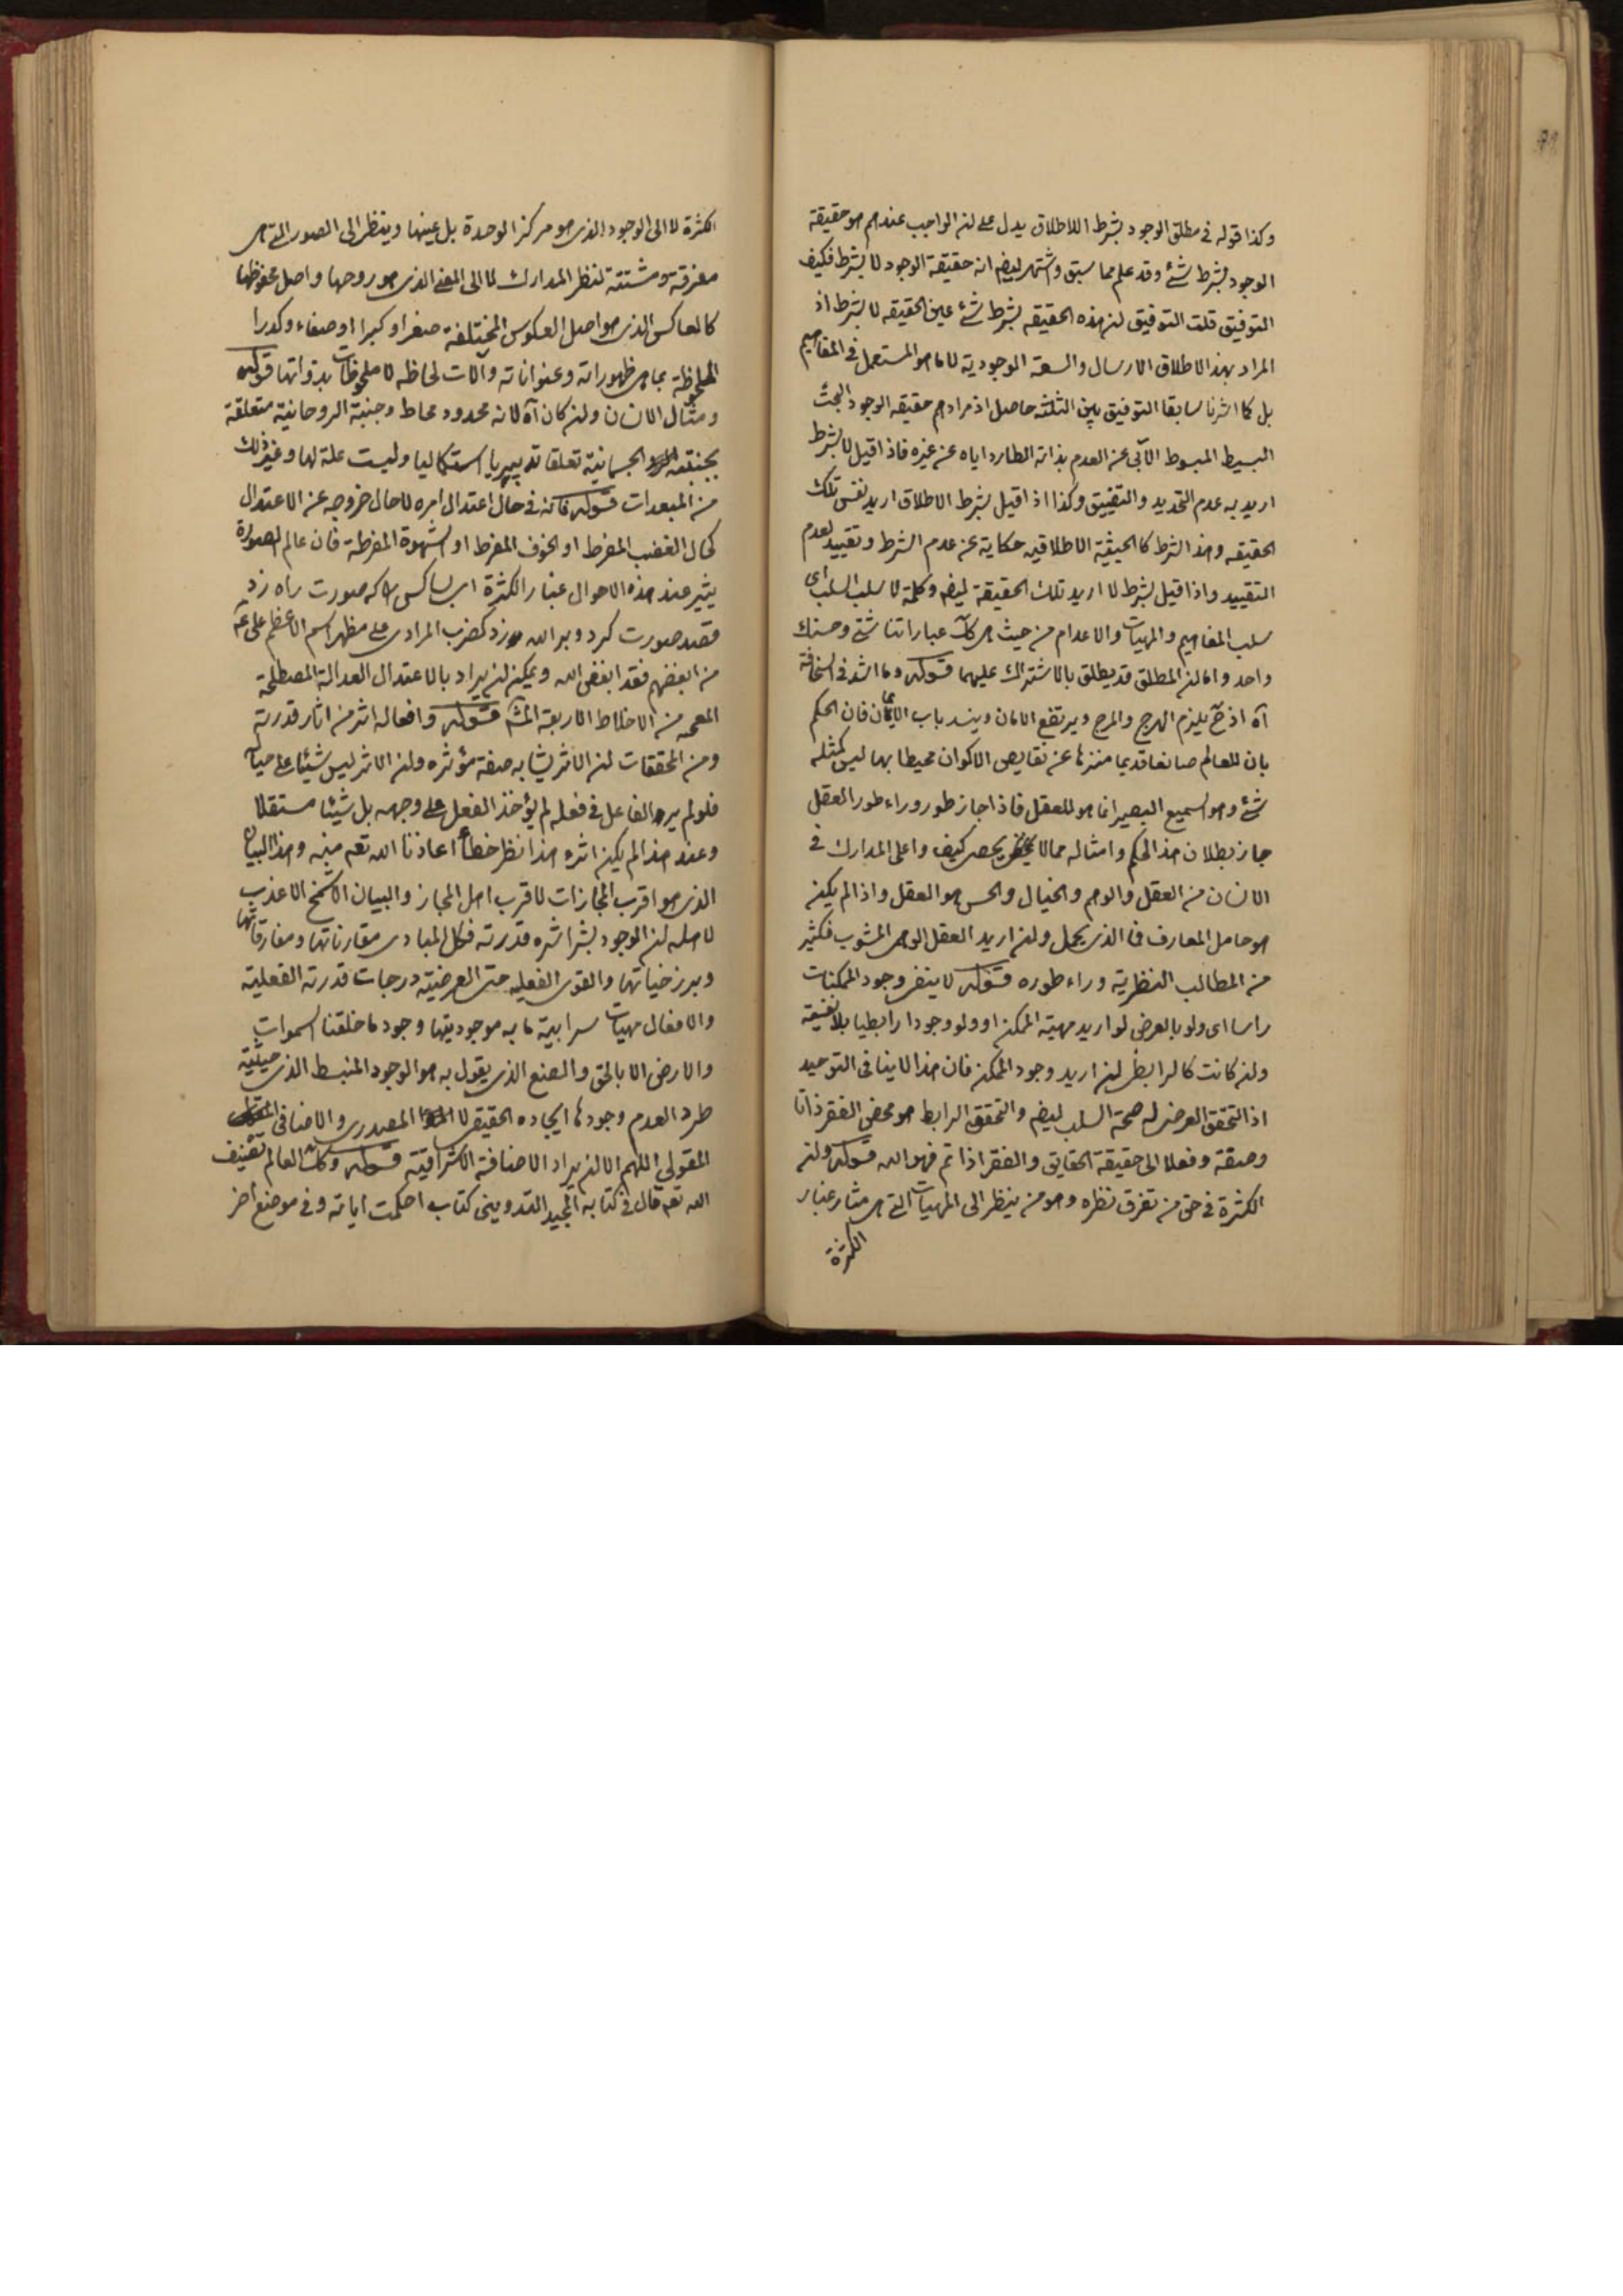 وكذا قوله في مطلق الوجود بشرط اللاطلاق يدل على ان الواجب عندهم هو حقيقة
الوجود بشرط شئ وقد علم مما سبق واشتهر ايضا انه حقيقة الوجود لا بشرط فكيف
التوفيق قلت التوفيق ان هذه الحقيقه بشرط شئ عين الحقيقه لا بشرط اذ
المراد بهذا الاطلاق الارسال والسعة الوجودية لا ما هو المستعمل في المفاهيم
بل كما اشرنا سابقا التوفيق بين الثلثة حاصل اذ مرادهم حقيقه الوجود البحث
البسيط المبسوط الآبى عن العدم بذاته الطارد اياه عن غيره فاذا قيل لا بشرط
اريد به عدم التحديد والتضييق وكذا اذا قيل بشرط الاطلاق اريد نفس تلك
الحقيقه وهذا الشرط كالحيثية الاطلاقيه حكاية عن عدم الشرط وتقييد لعدم
التقييد واذا قيل بشرط لا اريد تلك الحقيقة ايضا وكلمة لا سلب السلب اى
سلب المفاهيم والمهيات والاعدام من حيث هى كك عباراتنا شتى وحسنك
واحد واما ان المطلق قد يطلق بالاشتراك عليهما قوله وما اشد في السخافة
آه اذ ح يلزم الهرج والمرج ويرتفع الامان وينسد باب الايمان فان الحكم
بان للعالم صانعا قديما منزها عن نقايص الاكوان محيطا بها ليس كمثله
شئ وهو السميع البصير انما هو للعقل فاذا جاز طور وراء طور العقل
جاز بطلان هذا الحكم وامثاله مما لا يحصى كيف واعلى المدارك في
الانسان من العقل والوهم والخيال والحس هو العقل واذا لم يكن
هو حامل المعارف فما الذى يحمل وان اريد العقل الوهمى المشوب فكثير
من المطالب النظرية وراء طوره قوله لا ينفى وجود الممكنات
راسا اى ولو بالعرض لو اريد مهية الممكن او ولو وجودا رابطيا بلا نفسية
وان كانت كالرابطى ان اريد وجود الممكن فان هذا لا ينافى التوحيد
اذ التحقق العرضى له صحة السلب ايضا والتحقق الرابط هو محض الفقر ذاتا
وصفة وفعلا الى حقيقة الحقايق والفقر اذا تم فهو الله قوله وان
الكثرة في حق من تفرق نظره وهو من ينظر الى المهيات التى هى مثار غبار
الكثرة
الكثرة لا الى الوجود الذى هو مركز الوحدة بل عينها وينظر الى الصور التى هى
مفرقة ومشتتة لنظر المدارك لا الى المعنى الذى هو روحها واصل محفوظها
كالعاكس الذى هو اصل العكوس المختلفة صغرا وكبرا او صفاء وكدرا
الملحوظة بما هى ظهوراته وعنواناته وآلات لحاظه لا ملحوظات بذواتها قوله
ومثال الانسان وان كان آه لانه محدود محاط وجنبة الروحانية متعلقة
بجنبته الجسمانية تعلقا تدبيريا استكماليا وليست علة لها وغير ذلك
من المبعدات قوله فانه في حال اعتدال امره لا حال خروجه عن الاعتدال
كحال الغضب المفرط او الخوف المفرط او الشهوة المفرطة فان عالم الصورة
يثير عند هذه الاحوال غبار الكثرة اى بسا كس را كه صورت راه زد
قصد صورت كرد و بر الله زد كضرب المرادى على مظهر اسم الاعظم على ع
من ابغضهم فقد ابغض الله ويمكن ان يراد بالاعتدال العدالة المصطلحة
المعجمه من الاخلاط الاربعة المش قوله وافعاله اثر من اثار قدرته
ومن المحققات ان الاثر يشابه صفة مؤثره وان الاثر ليس شيئا على حياله
فلو لم ير الفاعل في فعله لم يؤخذ الفعل على وجهه بل شيئا مستقلا
وعند هذا لم يكن اثره هذا نظر خطأ اعاذنا الله تعم منه وهذا البيان
الذى هو اقرب المجازات لاقرب اهل المجاز والبيان الاشمخ الاعذب
لاهله ان الوجود بشراشره قدرته فكل المبادى مقارناتها ومفارقاتها
وبرزخياتها والقوى الفعليه حتى العرضية درجات قدرته الفعلية
والافعال مهيات سرابية ما به موجوديتها وجود ما خلقنا السموات
والارض الا بالحق والصنع الذى يقول به هو الوجود المنبسط الذى حيثية
طرد العدم وجودها ايجاده الحقيقى لا المصدرى والاضافى
المقولى اللهم الا ان يراد الاضافة الاشراقية قوله وكك العالم تصنيف
الله تعم قال في كتابه المجيد التدوينى كتاب احكمت اياته وفي موضع اخر